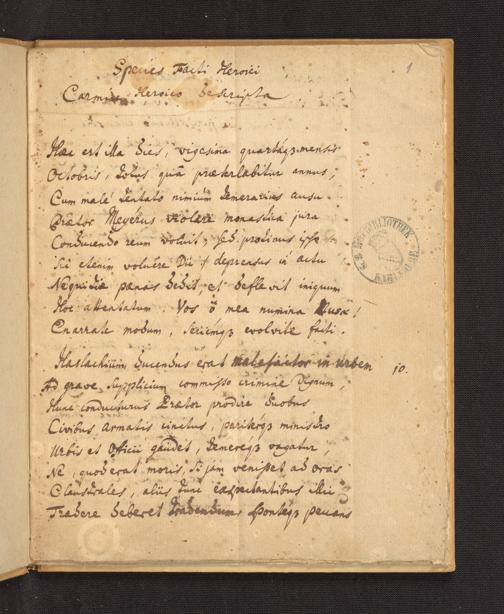 1
Species Facti Heroici
Carmine Heroico descripta
Haec est illa dies, vigesima quartáqz mensis
Octobris, totus quâ praeterlabitur annus;
Cum malè tentato nimiùm temerarius ausu
Praetor Meyerus violare monastica jura
Conducendo reum voluit, sed protinus ipse
Sic etenim voluêre Dii deprensus in actu
Nequitiae paenas dedit, et deflevit iniquum
Hoc attentatum. Vos ô mea numina Musae!
Enarrate modum, seriemqz evolvite facti.
Haslachium ducendus erat malefactor in urbem
10.
Ad grave supplicium commisso crimine dignum,
Hunc conducturus Praetor prodire duobus
Civibus armatis cinctus, pariterqz ministro
Urbis et Officii gaudet, temereqz vagatur,
Ne, quod erat moris, si jam venisset ad oras
Claustrales, aliis tunc exspectantibus illic
Tradere deberet tradendum, Pontemqz
BIBLIOTHEK
KARLSRUHE